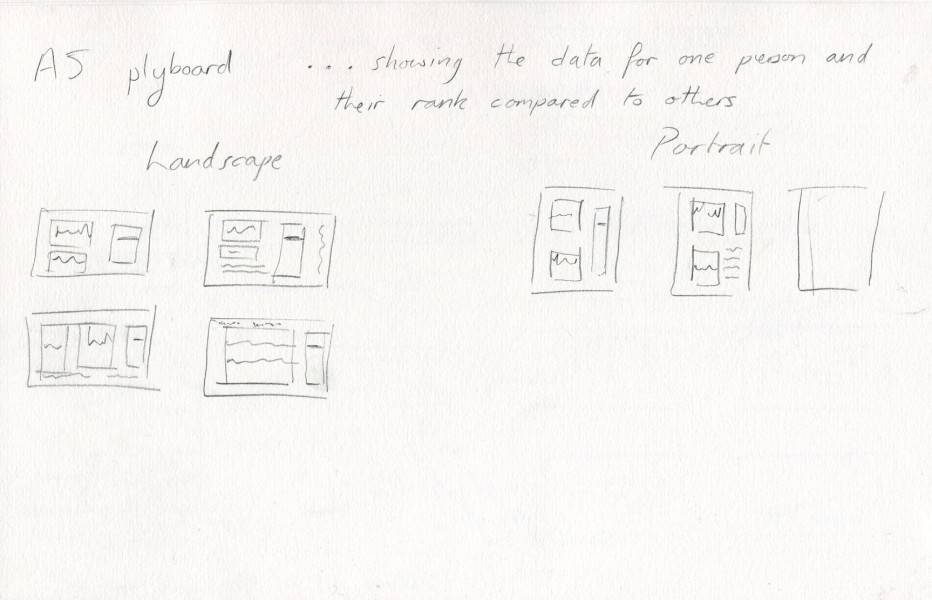 A5 plyboard ... showing the data for one person and
their rank compared to others
Landscape
Portrait